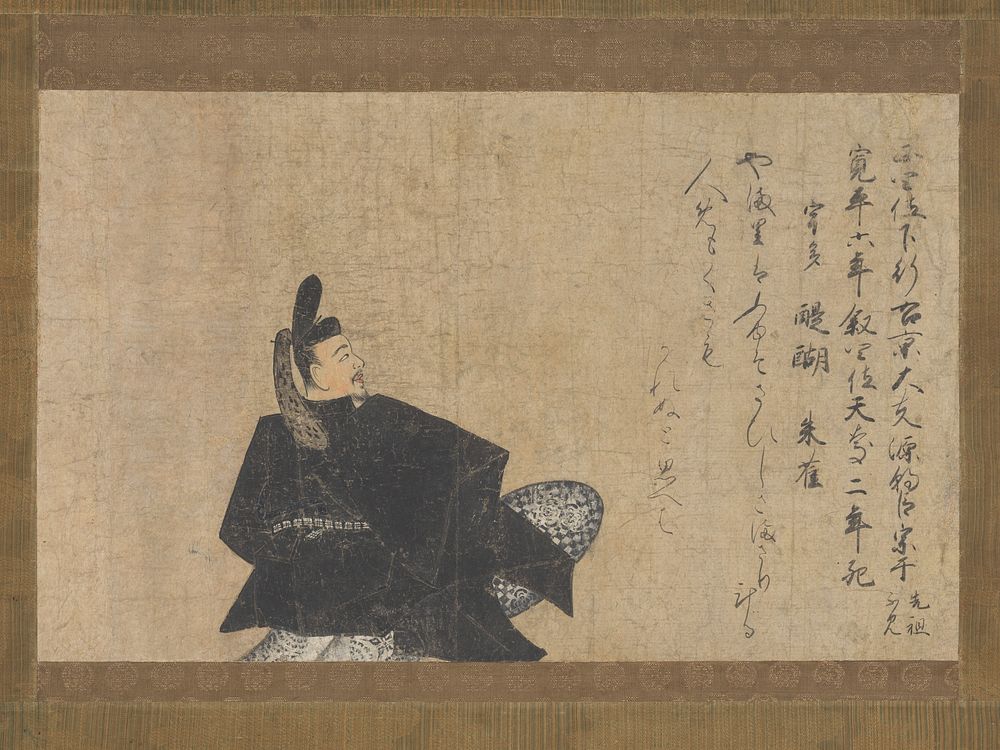 正四位下行右京大夫源朝臣宗于
先祖
不見
寛平六年叙四位天慶二年死
宇多 醍醐 朱雀
や満里はふゆそさひしさ満さり計る
人めもくさも
かれぬと思へは